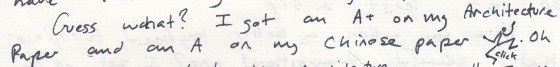 Guess what? I got an A+ on my Architecture
Paper and an A on my Chinese paper click. Oh